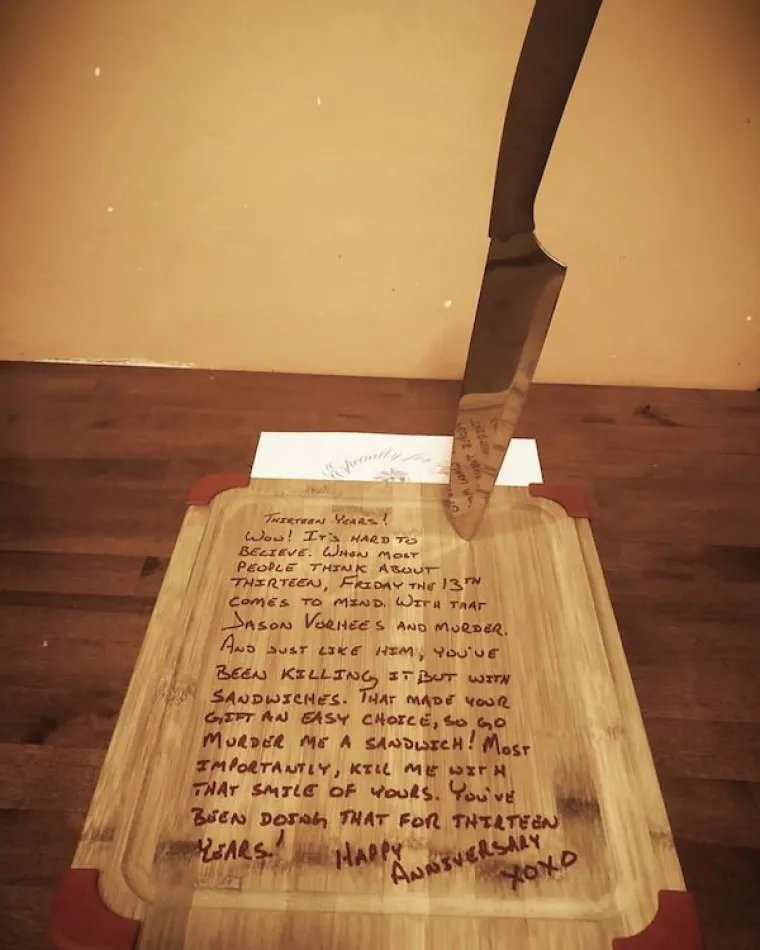 Especially for
THIRTEEN YEARS!
WOW! IT'S HARD TO
BELIEVE. WHEN MOST
PEOPLE THINK ABOUT
THIRTEEN, FRIDAY THE 13TH
COMES TO MIND. WITH THAT
JASON VORHEES AND MURDER.
AND JUST LIKE HIM, YOU'VE
BEEN KILLING IT BUT WITH
SANDWICHES. THAT MADE YOUR
GIFT AN EASY CHOICE, SO GO
MURDER ME A SANDWICH! MOST
IMPORTANTLY, KILL ME WITH
THAT SMILE OF YOURS. YOU'VE
BEEN DOING THAT FOR THIRTEEN
YEARS! HAPPY
ANNIVERSARY
XOXO